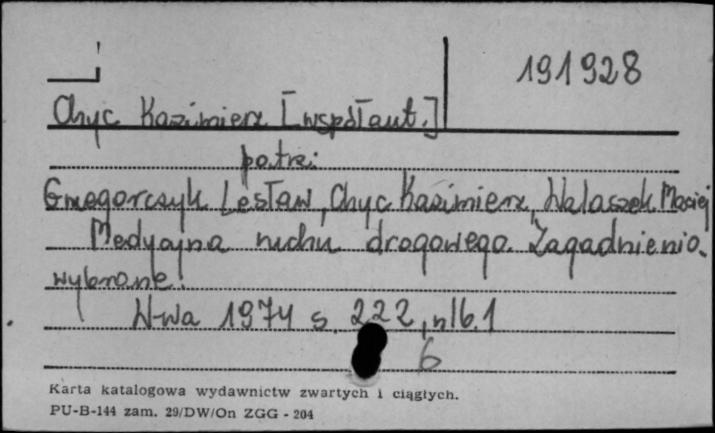 191928
Chyc Kazimierz [współaut.]
patrz:
Grzegorczyk Lesław, Chyc Kazimierz, Walaszek Maciej
Medycyna ruchu drogowego. Zagadnienia
wybrane.
W-wa 1974 s. 222, nlb. 1
6
Karta katalogowa wydawnictw zwartych i ciągłych.
PU-B-144 zam. 29/DW/On ZGG - 204